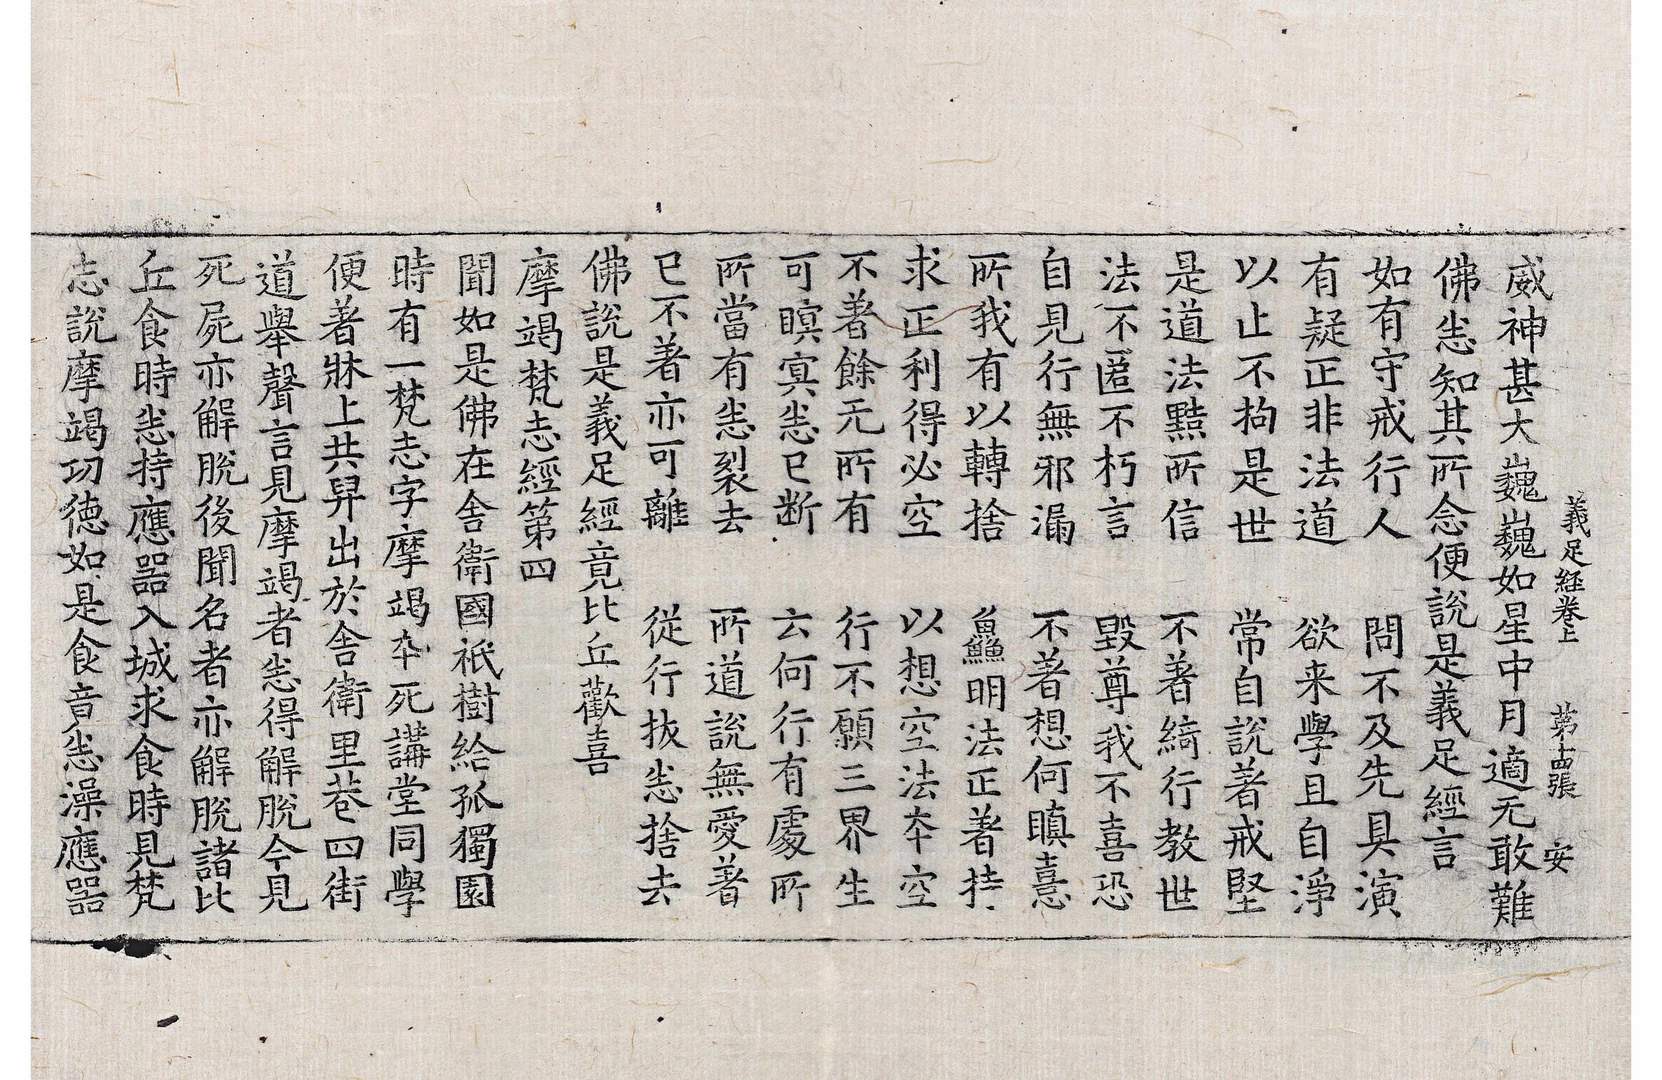 義足経卷上 第十四張 安
威神甚大巍巍如星中月適无敢難
佛悉知其所念便說是義足經言
如有守戒行人 問不及先具演
有疑正非法道 欲来學且自淨
以止不拘是世 常自說著戒堅
是道法黠所信 不著綺行教世
法不匿不朽言 毀尊我不喜恐
自見行無邪漏 不著想何瞋憙
所我有以轉捨 鱻明法正著持
求正利得必空 以想空法夲空
不著餘无所有 行不願三界生
可瞑冥悉已断 云何行有處所
所當有悉裂去 所道說無愛著
已不著亦可離 從行拔悉捨去
佛說是義足經竟比丘歡喜
摩竭梵志經第四
聞如是佛在舍衛國祇樹給孤獨園
時有一梵志字摩竭卒死講堂同學
便著牀上共舁出於舍衛里巷四街
道舉聲言見摩竭者悉得解脫今見
死屍亦解脫後聞名者亦解脫諸比
丘食時悉持應器入城求食時見梵
志說摩竭功德如是食音悉澡應器